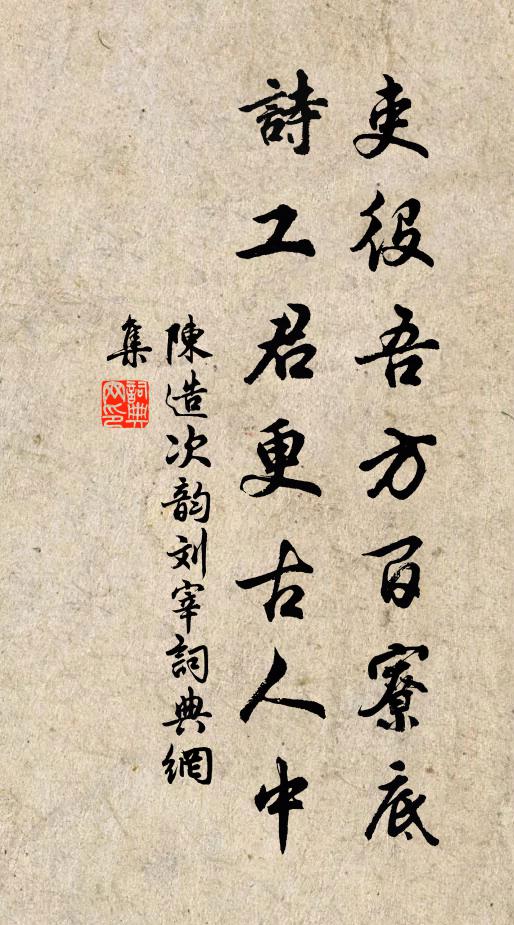 吏役吾方百寮底
詩工君更古人中
陳造次韵刘宰詞典網
集
詞典网印